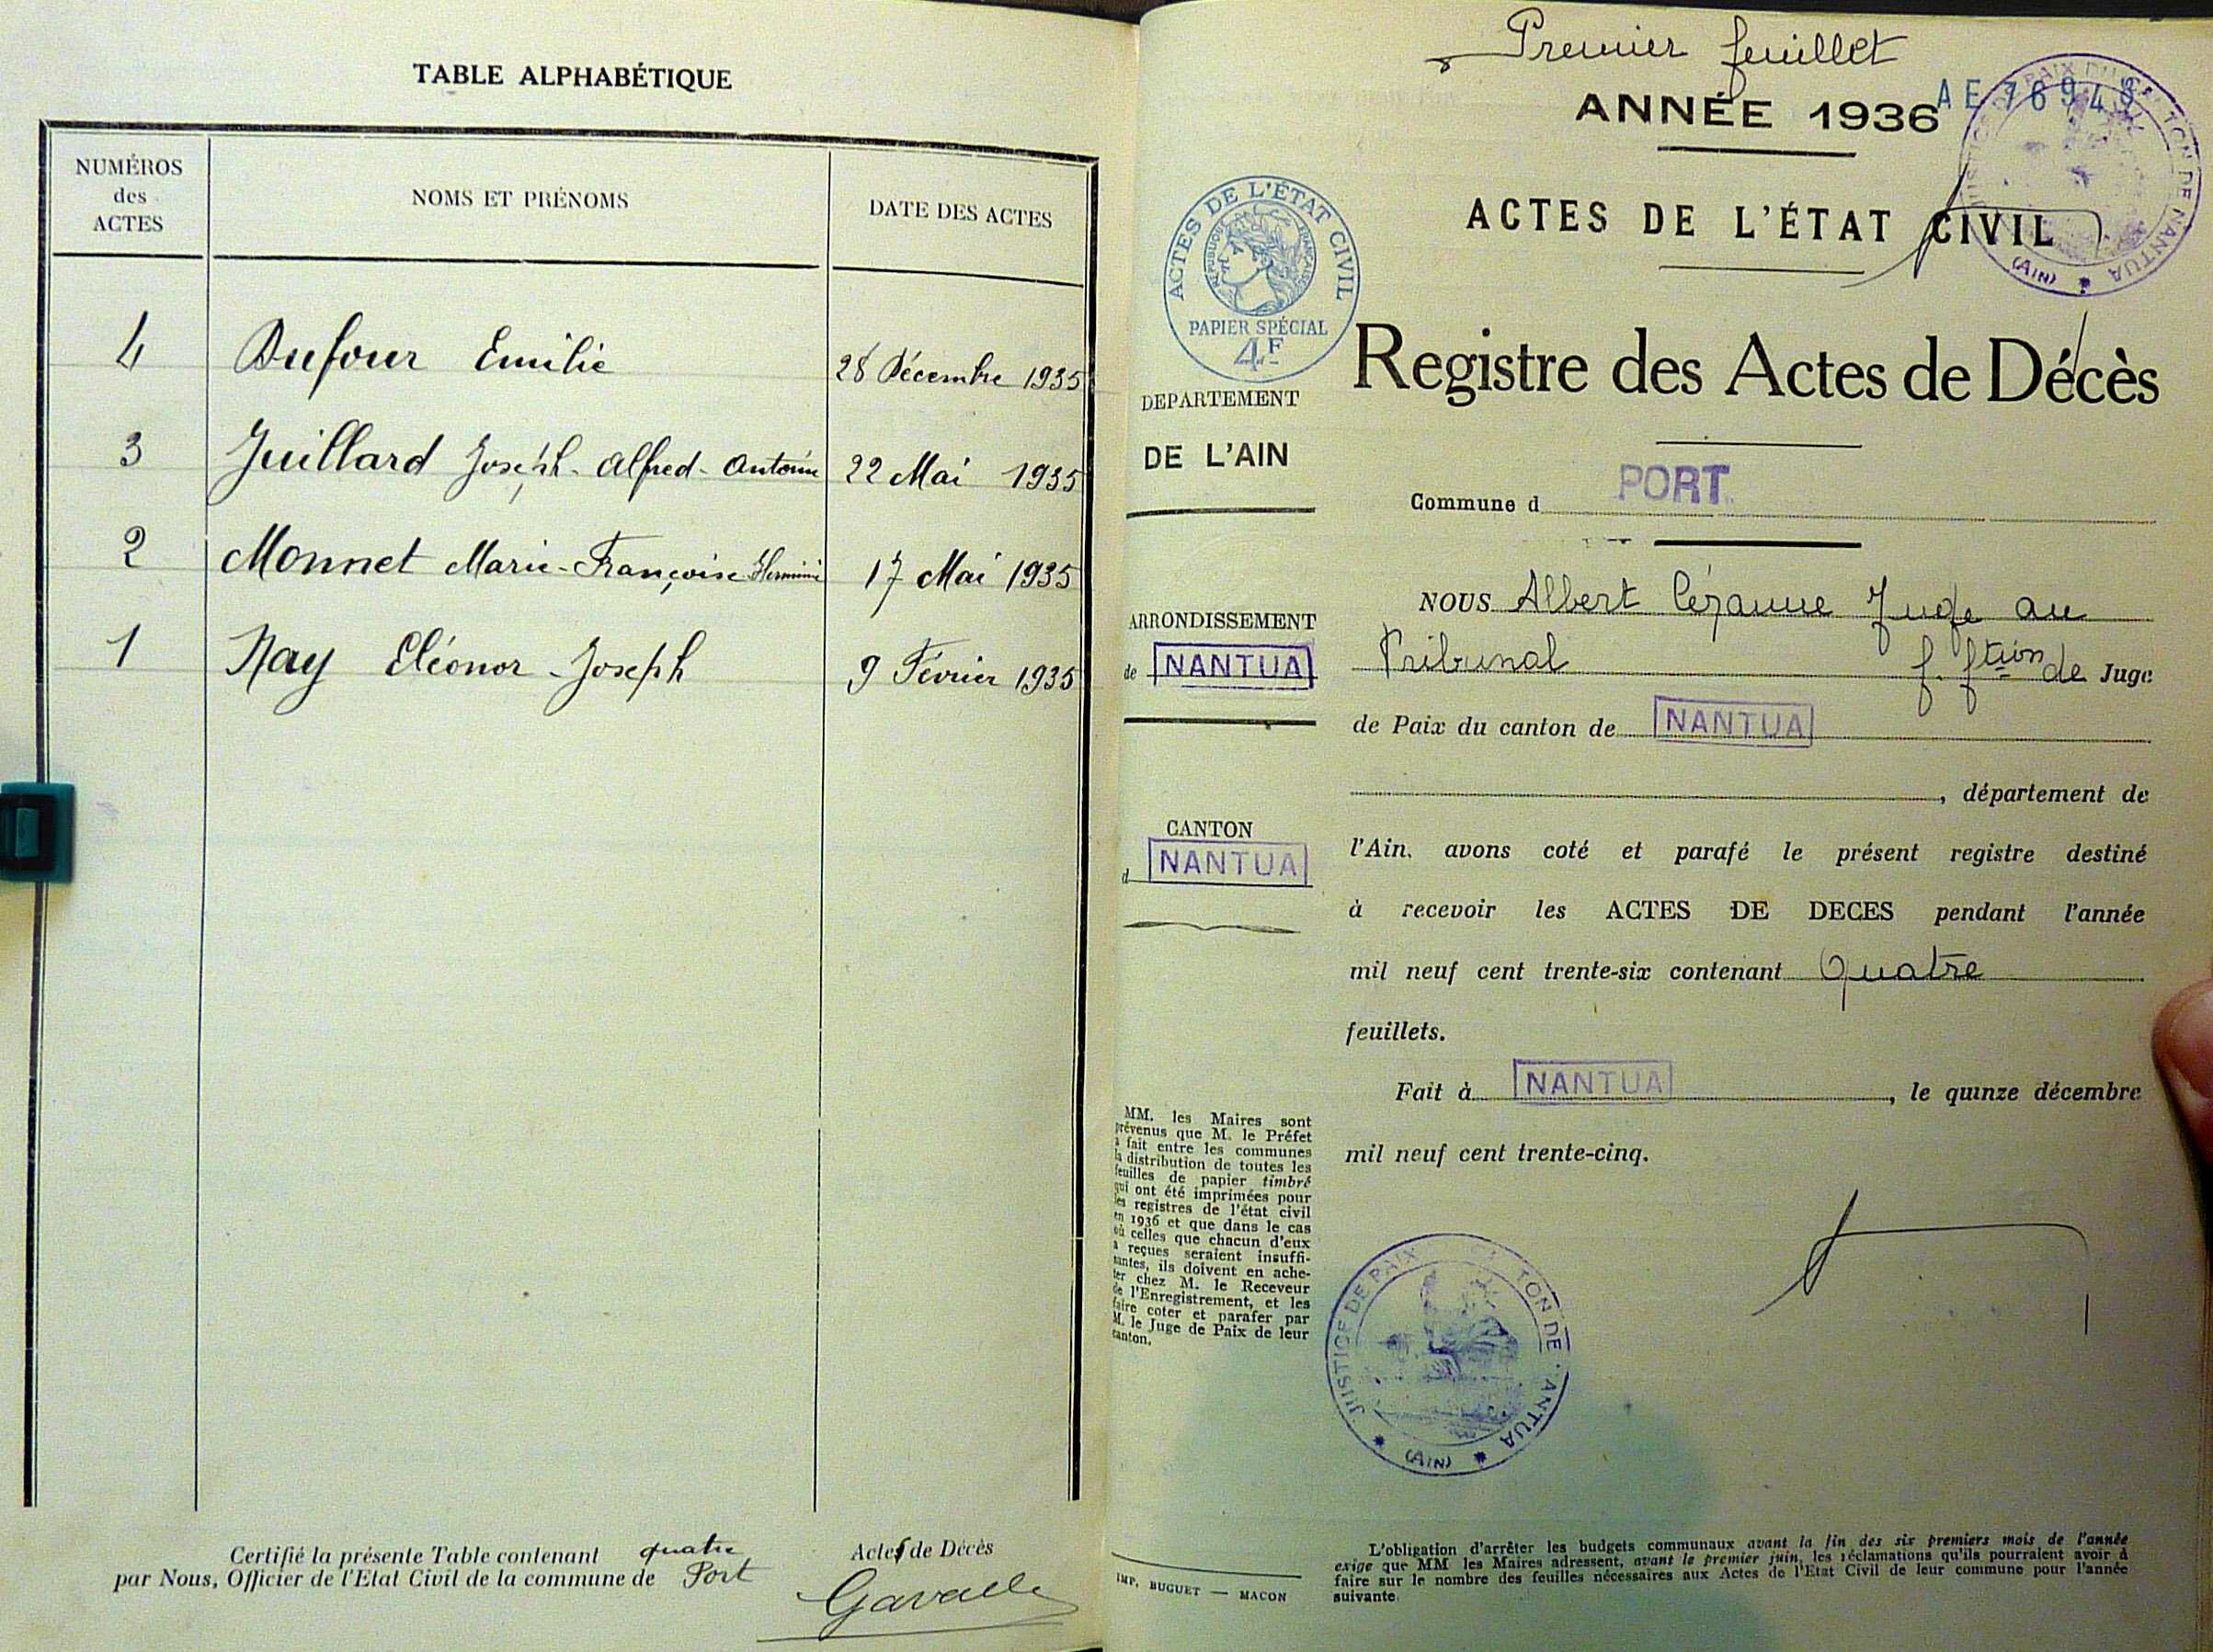 TABLE ALPHABÉTIQUE
NUMÉROS
des
ACTES
NOMS ET PRÉNOMS
DATE DES ACTES
4 Dufour Emilie 28 Décembre 1935
3 Juillard Joseph-Alfred-Antoine 22 Mai 1935
2 Monnet Marie-Françoise 17 Mai 1935
1 Nay Eléonor-Joseph 9 Février 1935
Certifié la présente Table contenant quatre Actes de Décès
par Nous, Officier de l'Etat Civil de la commune de Port
Premier feuillet
ANNÉE 1936
ACTES DE L'ÉTAT CIVIL
ACTES DE L'ÉTAT CIVIL
RÉPUBLIQUE FRANÇAISE
PAPIER SPÉCIAL
4F
(AIN)
Registre des Actes de Décès
DEPARTEMENT
DE L'AIN
Commune d PORT
ARRONDISSEMENT
de NANTUA
CANTON
d NANTUA
NOUS Albert Cézanne Juge au
Tribunal f. ftion de Juge
de Paix du canton de NANTUA
, département de
l'Ain. avons coté et parafé le présent registre destiné
à recevoir les ACTES DE DECES pendant l'année
mil neuf cent trente-six contenant Quatre
feuillets.
Fait à NANTUA, le quinze décembre
mil neuf cent trente-cinq.
MM. les Maires sont
prévenus que M. le Préfet
a fait entre les communes
la distribution de toutes les
feuilles de papier timbré
qui ont été imprimées pour
les registres de l'état civil
en 1936 et que dans le cas
où celles que chacun d'eux
a reçues seraient insuffi-
santes, ils doivent en ache-
ter chez M. le Receveur
de l'Enregistrement, et les
faire coter et parafer par
M. le Juge de Paix de leur
canton.
JUSTICE DE PAIX
(AIN)
IMP. BUGUET — MACON
L'obligation d'arrêter les budgets communaux avant la fin des six premiers mois de l'année
exige que MM les Maires adressent, avant le premier juin, les réclamations qu'ils pourraient avoir à
faire sur le nombre des feuilles nécessaires aux Actes de l'Etat Civil de leur commune pour l'année
suivante.